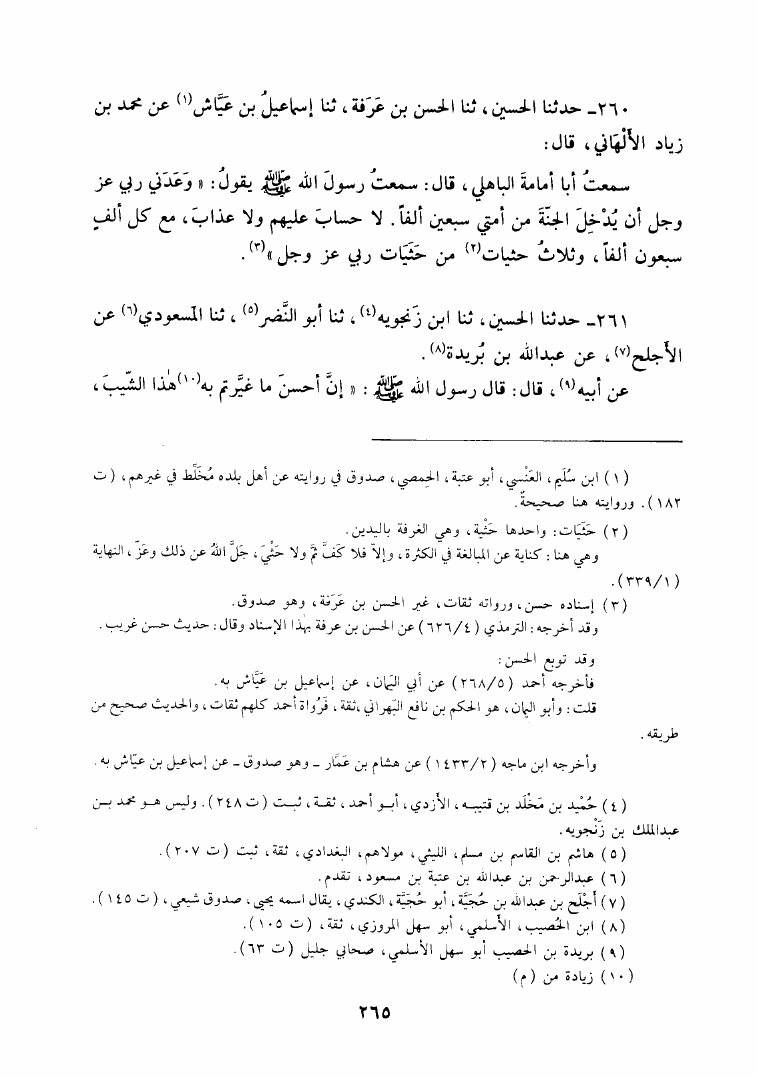 ٢٦٠ـ حدثنا الحسين، ثنا الحسن بن عَرَفة، ثنا إسماعيلُ بن عَيَّاش(١) عن محمد بن
زياد الأَلْهَاني، قال:
سمعتُ أبا أمامةَ الباهلي، قال: سمعتُ رسولَ الله ﷺ يقولُ: « وَعَدَني ربي عز
وجل أن يُدْخِلَ الجنّةَ من أمتي سبعين ألفاً. لا حسابَ عليهم ولا عذابَ، مع كل ألفٍ
سبعون ألفاً، وثلاثُ حثيات(٢) من حَثَيَات ربي عز وجل »(٣).
٢٦١ـ حدثنا الحسين، ثنا ابن زَنجويه(٤)، ثنا أبو النَّضر(٥)، ثنا المسعودي(٦) عن
الأجلح(٧)، عن عبدالله بن بُريدة(٨).
عن أبيه(٩)، قال: قال رسول الله ﷺ: « إنَّ أحسنَ ما غيَّرتم به(١٠) هٰذا الشّيبَ،
(١) ابن سُلَيم، العَنْسي، أبو عتبة، الحِمصي، صدوق في روايته عن أهل بلده مُخَلِّط في غيرهم، (ت
١٨٢). وروايته هنا صحيحةٌ.
(٢) حَثَيَات: واحدها حَثْية، وهي الغرفة باليدين.
وهي هنا: كناية عن المبالغة في الكثرة، وإلاّ فلا كَفَّ ثَمَّ ولا حَثْيَ، جَلَّ اللهُ عن ذلك وعَزّ، النهاية
(٣٣٩/١).
(٣) إسناده حسن، ورواته ثقات، غير الحسن بن عَرَفة، وهو صدوق.
وقد أخرجه: الترمذي (٦٢٦/٤) عن الحسن بن عرفة بهٰذا الإسناد وقال: حديث حسن غريب.
وقد توبع الحسن:
فأخرجه أحمد (٢٦٨/٥) عن أبي اليمان، عن إسماعيل بن عَيَّاش به.
قلت: وأبو اليمان، هو الحكم بن نافع البَهراني، ثقة، فَرُواة أحمد كلهم ثقات، والحديث صحيح من
طريقه.
وأخرجه ابن ماجه (١٤٣٣/٢) عن هشام بن عَمَّار ـ وهو صدوق ـ عن إسماعيل بن عيّاش به.
(٤) حُمَيد بن مَخْلَد بن قتيبـه، الأزدي، أبـو أحمد، ثقـة، ثبـت (ت ٢٤٨). وليس هـو محمد بـن
عبدالملك بن زَنْجويه.
(٥) هاشم بن القاسم بن مسلم، الليثي، مولاهم، البغدادي، ثقة، ثبت (ت ٢٠٧).
(٦) عبدالرحمن بن عبدالله بن عتبة بن مسعود، تقدم.
(٧) أَجْلَح بن عبدالله بن حُجَيَّة، أبو حُجَيَّة، الكندي، يقال اسمه يحيى، صدوق شيعي، (ت ١٤٥).
(٨) ابن الحُصيب، الأسلمي، أبو سهل المروزي، ثقة، (ت ١٠٥).
(٩) بريدة بن الحصيب أبو سهل الأسلمي، صحابي جليل (ت ٦٣).
(١٠) زيادة من (م)
٢٦٥